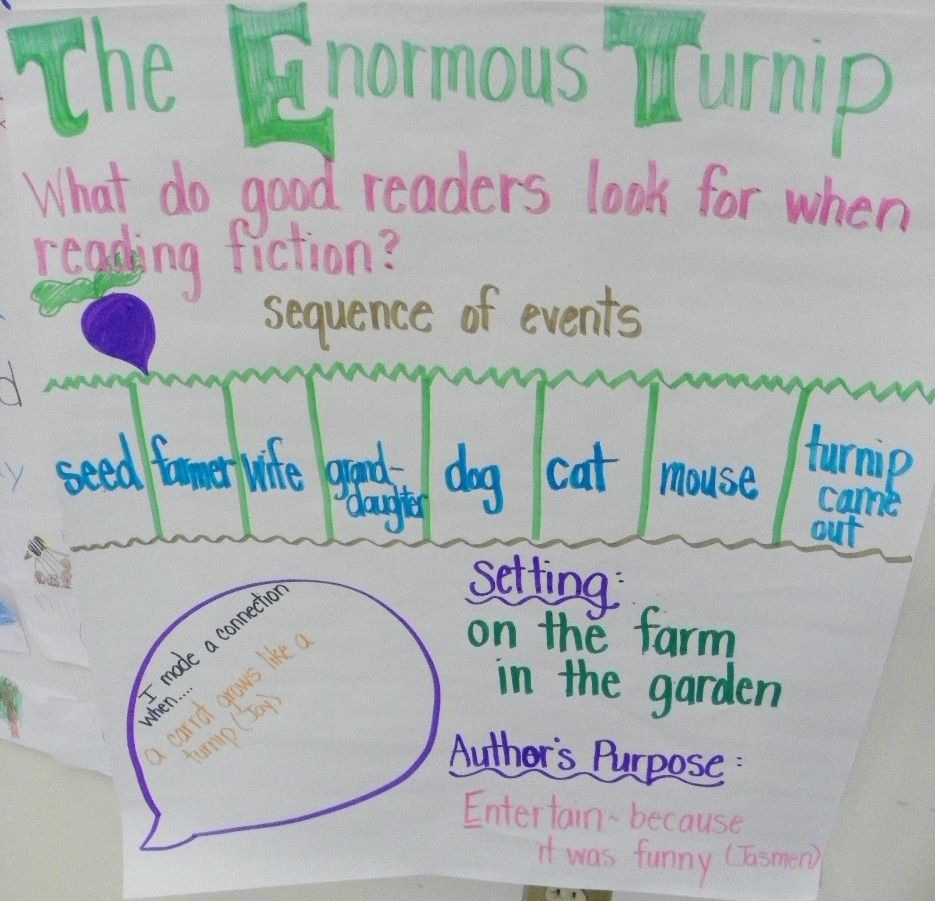 The Enormous Turnip
What do good readers look for when
reading fiction?
sequence of events
seed farmer wife grand- dog cat mouse turnip
daughter came
out
I made a connection
when....
a carrot grows like a
turnip (Jay)
Setting:
on the farm
in the garden
Author's Purpose:
Entertain - because
it was funny (Jasmen)
d
y